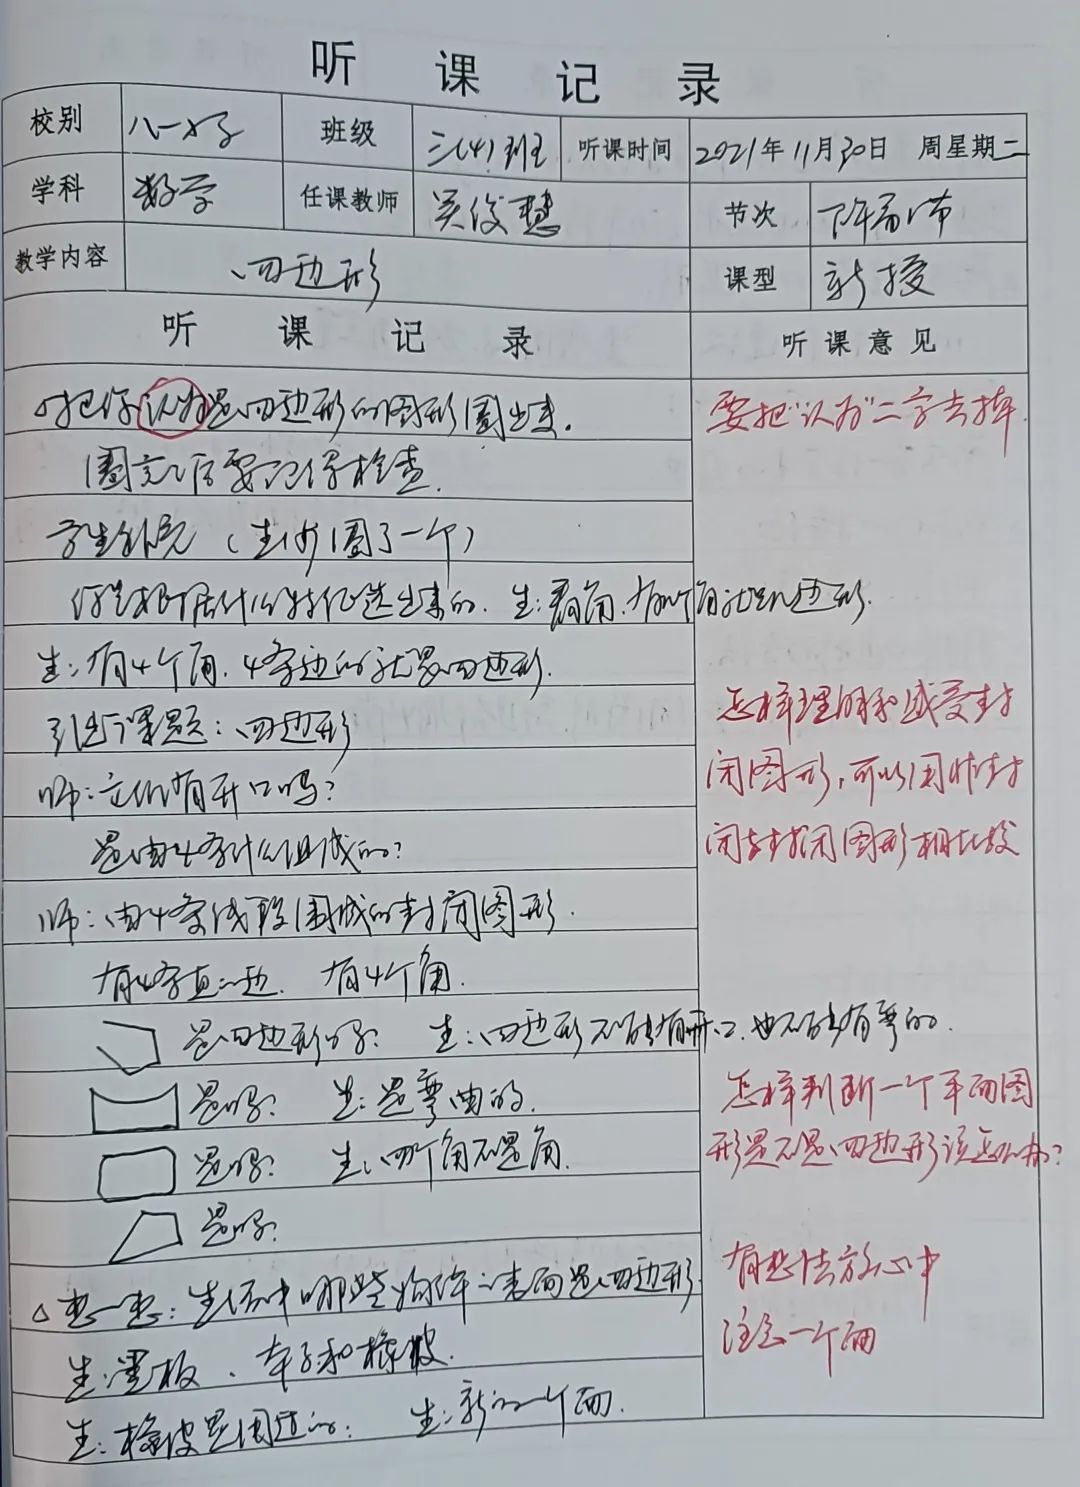 听课记录
校别 八一 班级 三(4)班 听课时间 2021年11月30日 周星期二
学科 数学 任课教师 吴俊慧 节次 下午第1节
教学内容 四边形 课型 新授
听课记录 听课意见
把你认为是四边形的图形圈出来.
要把“认为”二字去掉.
圈完后要记得检查.
学生 (生少圈了一个)
你是根据什么特征选出来的. 生:看角.有4个角就是四边形.
生:有4个角.4条边的就是四边形.
引出课题:四边形
怎样理解和感受封
师:它们有开口吗?
闭图形,可以用非封
是由4条什么组成的?
闭与封闭图形相比较
师:由4条线段围成的封闭图形.
有4条直的边. 有4个角.
是四边形吗? 生:四边形不能有开口.也不能有弯的.
怎样判断一个平面图
是吗? 生:是弯曲的.
形是不是四边形该怎么办?
是吗? 生:四个角不是角.
是吗?
有想法放心中
△想一想:生活中哪些物体的表面是四边形.
注意一个面
生:黑板、本子和橡皮.
生:橡皮是的. 生:的一个面.